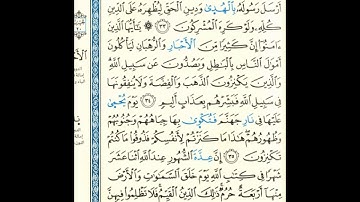 أَرْسَلَ رَسُولَهُۥ بِٱلْهُدَىٰ وَدِينِ ٱلْحَقِّ لِيُظْهِرَهُۥ عَلَى ٱلدِّينِ
كُلِّهِۦ وَلَوْ كَرِهَ ٱلْمُشْرِكُونَ ٣٣ ۞ يَـٰٓأَيُّهَا ٱلَّذِينَ
ءَامَنُوٓا۟ إِنَّ كَثِيرًا مِّنَ ٱلْأَحْبَارِ وَٱلرُّهْبَانِ لَيَأْكُلُونَ
أَمْوَٰلَ ٱلنَّاسِ بِٱلْبَـٰطِلِ وَيَصُدُّونَ عَن سَبِيلِ ٱللَّهِ
وَٱلَّذِينَ يَكْنِزُونَ ٱلذَّهَبَ وَٱلْفِضَّةَ وَلَا يُنفِقُونَهَا
فِى سَبِيلِ ٱللَّهِ فَبَشِّرْهُم بِعَذَابٍ أَلِيمٍ ٣٤ يَوْمَ يُحْمَىٰ
عَلَيْهَا فِى نَارِ جَهَنَّمَ فَتُكْوَىٰ بِهَا جِبَاهُهُمْ وَجُنُوبُهُمْ
وَظُهُورُهُمْ هَـٰذَا مَا كَنَزْتُمْ لِأَنفُسِكُمْ فَذُوقُوا۟ مَا كُنتُمْ
تَكْنِزُونَ ٣٥ إِنَّ عِدَّةَ ٱلشُّهُورِ عِندَ ٱللَّهِ ٱثْنَا عَشَرَ
شَهْرًا فِى كِتَـٰبِ ٱللَّهِ يَوْمَ خَلَقَ ٱلسَّمَـٰوَٰتِ وَٱلْأَرْضَ
مِنْهَآ أَرْبَعَةٌ حُرُمٌ ذَٰلِكَ ٱلدِّينُ ٱلْقَيِّمُ فَلَا تَظْلِمُوا۟ فِيهِنَّ